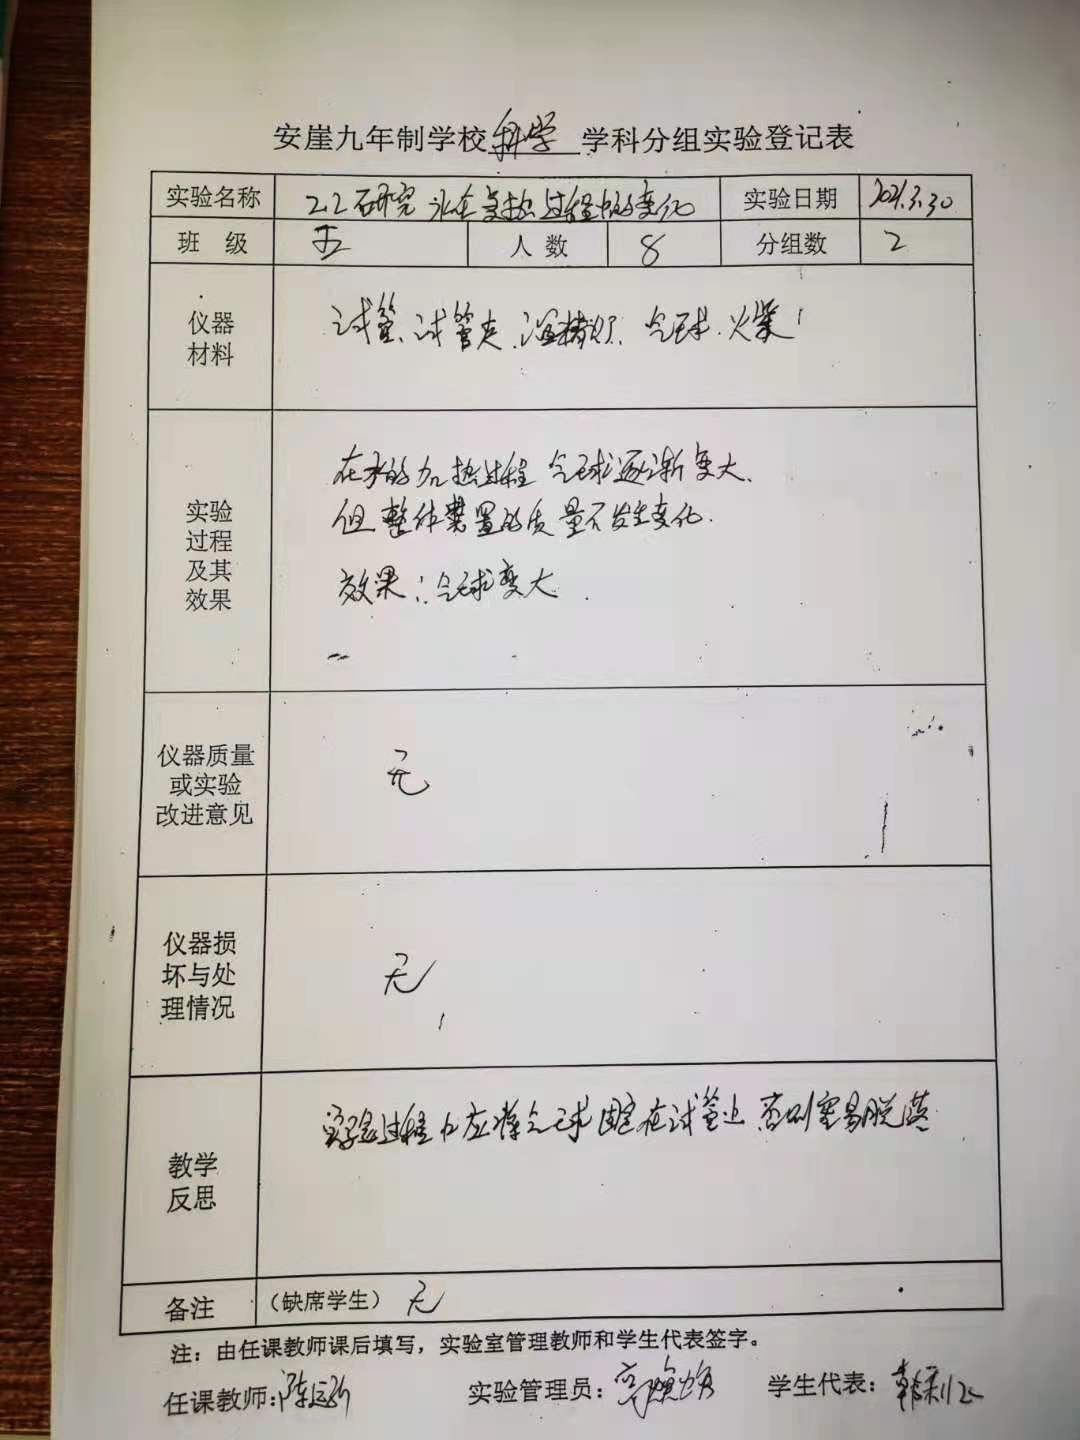 安崖九年制学校科学学科分组实验登记表
实验名称 2.2研究水在受热过程中的变化 实验日期 2021.3.30
班 级 五 人 数 8 分组数 2
仪器材料 试管、试管夹、酒精灯、气球、火柴
在水的加热过程 气球逐渐变大、
实验过程及其效果 但整体装置的质量不发生变化.
效果:气球变大.
仪器质量或实验改进意见 无
仪器损坏与处理情况 无
教学反思 实验过程中应将气球固定在试管上 否则容易脱落
备注 (缺席学生) 无
注:由任课教师课后填写,实验室管理教师和学生代表签字。
任课教师: 实验管理员: 学生代表: